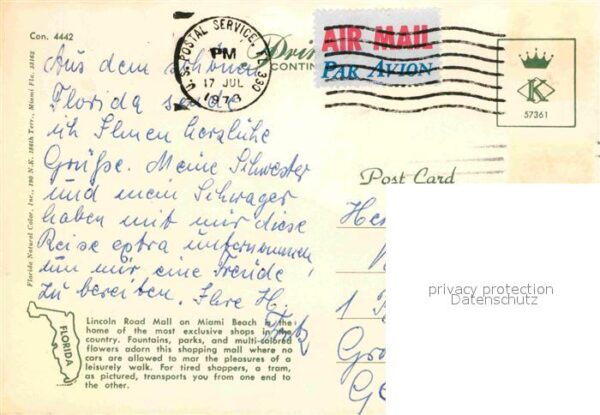 Con. 4442
U.S. POSTAL SERVICE, FL 330
PM
17 JUL
AIR MAIL
PAR AVION
CONTIN
K
57361
Aus dem schönen
Florida sende
ich Ihnen herzliche
Grüße. Meine Schwester
und mein Schwager
haben mit mir diese
Reise extra unternommen,
um mir eine Freude
zu bereiten. Ihre H.
Post Card
privacy protection
Datenschutz
Florida Natural Color, Inc., 190 N.E. 186th Terr., Miami Fla. 33162
FLORIDA
Lincoln Road Mall on Miami Beach is the
home of the most exclusive shops in the
country. Fountains, parks, and multi-colored
flowers adorn this shopping mall where no
cars are allowed to mar the pleasures of a
leisurely walk. For tired shoppers, a tram,
as pictured, transports you from one end to
the other.